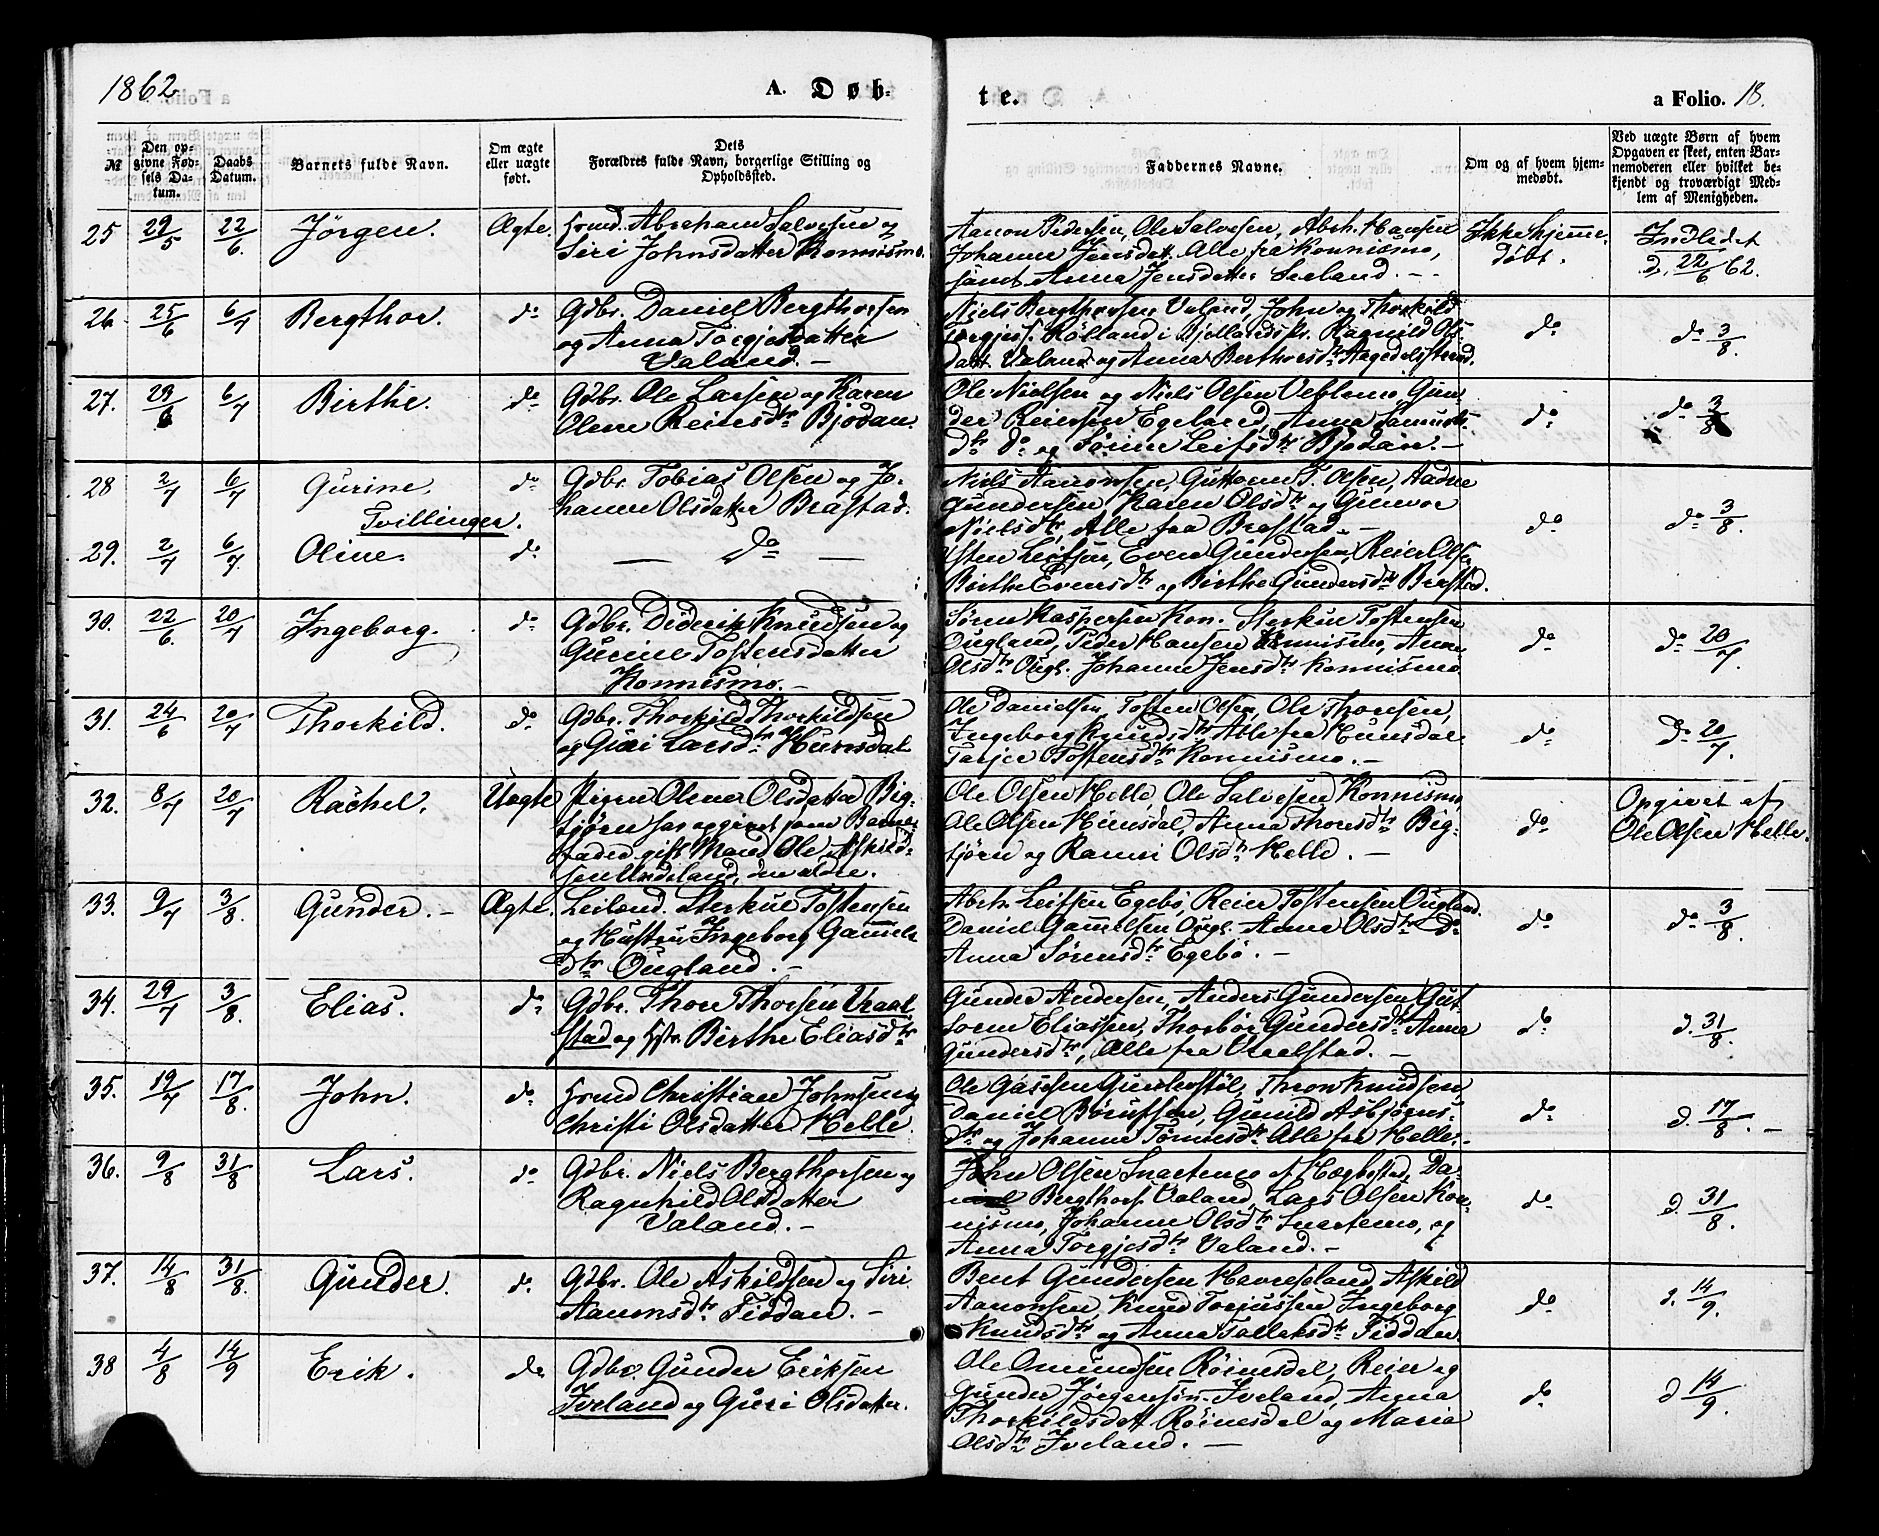 1862
A. Døb-
te.
a Folio. 18.
№
Den op-
givne Fød-
sels Da-
tum.
Daabs
Datum.
Barnets fulde Navn.
Om ægte
eller uægte
født.
Dets
Forældres fulde Navn, borgerlige Stilling og
Opholdssted.
Faddernes Navne.
Om og af hvem hjem-
medøbt.
Ved uægte Børn af hvem
Opgaven er skeet, enten Bar-
nemoderen eller hvilket be-
kjendt og troværdigt Med-
lem af Menigheden.
25 29/5 22/6. Jörgen. Ægte.
Abraham Salvesen og
Siri Johnsdatter Konnismo.
Aanon Pedersen, Ole Salvesen, Abrh. Hansen
Johanne Jensdatt. Alle fra Konnismo,
samt Anna Jensdatter Seeland. -
Ikke hjemme-
döbt.
Indledet
d. 22/6 62.
26. 25/6 6/7 Bergthor. do
Gdbr. Daniel Bergthorsen
og Anna Torgjesdatter
Valand. -
Niels Bergthorsen Valand, John og Thorkild
Torgjess. Rölland i Bjellandsk. Ragnild Ols-
datt. Valand og Anna Berthorsdtr
do
do 3/8.
27. 29/6 6/7 Birthe. do
Gdbr. Ole Larsen og Karen
Olene Reiersdtr Bjodan.
Ole Nielsen og Niels Olsen Veblemo, Gun-
der Reiersen Egeland, Anna Samuels-
dtr do og Sörine Leifsdtr Bjodan. -
do
do 3/8
28 2/7 6/7 Gurine. do
Tvillinger.
Gdbr. Tobias Olsen og Jo-
hanne Olsdatter Brastad.
Niels Aanonsen, Guttorm T. Olsen, Aadne
Gundersen, Karen Olsdtr og Gunvor
Nielsdtr, Alle fra Brastad. -
do
do 3/8.
29. 2/7 6/7. Oline. do
— do —
Östen Leifsen, Even Gundersen, Reier Olsen
Birthe Evensdtr og Birthe Gundersdtr Brastad.
30. 22/6 20/7 Ingeborg. do
Gdbr. Diderik Knudsen og
Gurine Tostensdatter
Konnismo. -
Sören Kaspersen Kon. Sterkur Tostensen
Ougland, Peder Hansen Konnismo, Anna
Olsdtr Ougl. Johanne Jensdtr Konnismo
do
do 20/7.
31. 24/6 20/7 Thorkild. do
Gdbr. Thorkild Thorkildsen
og Guri Larsdtr Hunsdal
Ole Danielsen, Tosten Olsen, Ole Thorsen,
Ingeborg Knudsdtr Alle fra Hunsdal
Tarjer Tostensdtr Konnismo. -
do
do 20/7.
32. 8/7 20/7 Rachel. Uægte
Pigen Olene Olsdatter Big-
tjörn har opgivet som Barne-
fader gift Mand Ole Askild-
sen Undeland, den ældre.
Ole Olsen Helle, Ole Salvesen Konnismo,
Ole Olsen Hunsdal, Anna Thorsdtr Big-
tjörn og Ramvi Olsdtr Helle. -
do
Opgivet af
Ole Olsen Helle.
33. 9/7 3/8. Gunder. - Ægte.
Leilænd. Sterkur Tostensen
og Hustru Ingeborg Gamels-
dtr Ougland. -
Abrh. Leifsen Egebö, Reier Tostensen Ougland.
Daniel Gamelsen Ougl. Anna Olsdtr do
Anna Sörensdtr Egebö. -
do
do 3/8.
34. 29/7 3/8. Elias. do
Gdbr. Thore Thorsen Vraal-
stad og Hstr. Birthe Eliasdtr
Gunder Andersen, Anders Gundersen, Gut-
torm Eliassen, Thorbör Gundersdtr Anna
Gundersdtr, Alle fra Vraalstad. -
do
d. 31/8.
35. 19/7 17/8. John. do
Christian Johnsen og
Christi Olsdatter Helle.
Ole Gasesen Gunherstöl, Thron Knudsen,
Daniel Börufsen, Gunild Asbjörns-
dtr og Johanne Tönnesdtr Alle fra Helle. -
do
d. 17/8. -
36. 9/8 31/8 Lars. do
Gdbr. Niels Bergthorsen og
Ragnhild Olsdatter
Valand. -
John Olsen Snartemo af Hægbostad, Da-
niel Bergthors. Valand, Lars Olsen Kon-
nismo, Johanne Olsdtr Snartemo, og
Anna Torgjesdtr Valand. -
do
d. 31/8.
37. 14/8 31/8. Gunder. do
Gdbr. Ole Askildsen og Siri
Aanonsdtr Fiddan. -
Bent Gundersen Havreseland, Askild
Aanonsen, Knud Torjussen, Ingeborg
Knudsdtr og Anna Tallaksdtr Fiddan
do
d. 14/9.
38 4/8 14/9 Erik. do
Gdbr. Gunder Eriksen
Iveland og Guri Olsdatter.
Ole Omundsen Röinesdal, Reier og
Gunder Jörgensön. Iveland, Anna
Thorkildsdatt Röinesdal og Maria
Olsdtr Iveland. -
do
d 14/9.